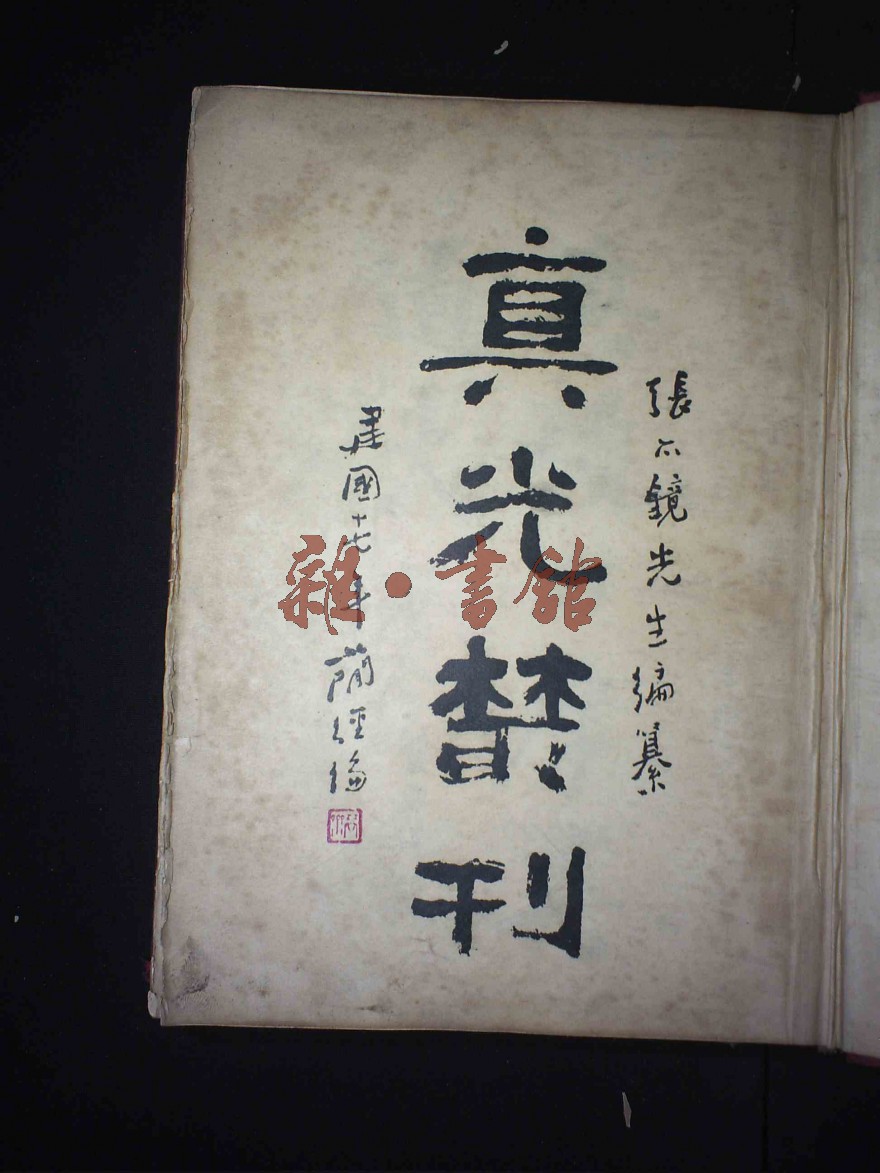 張亦鏡先生編纂
真光叢刊
建國十七年簡經綸
雜·書館